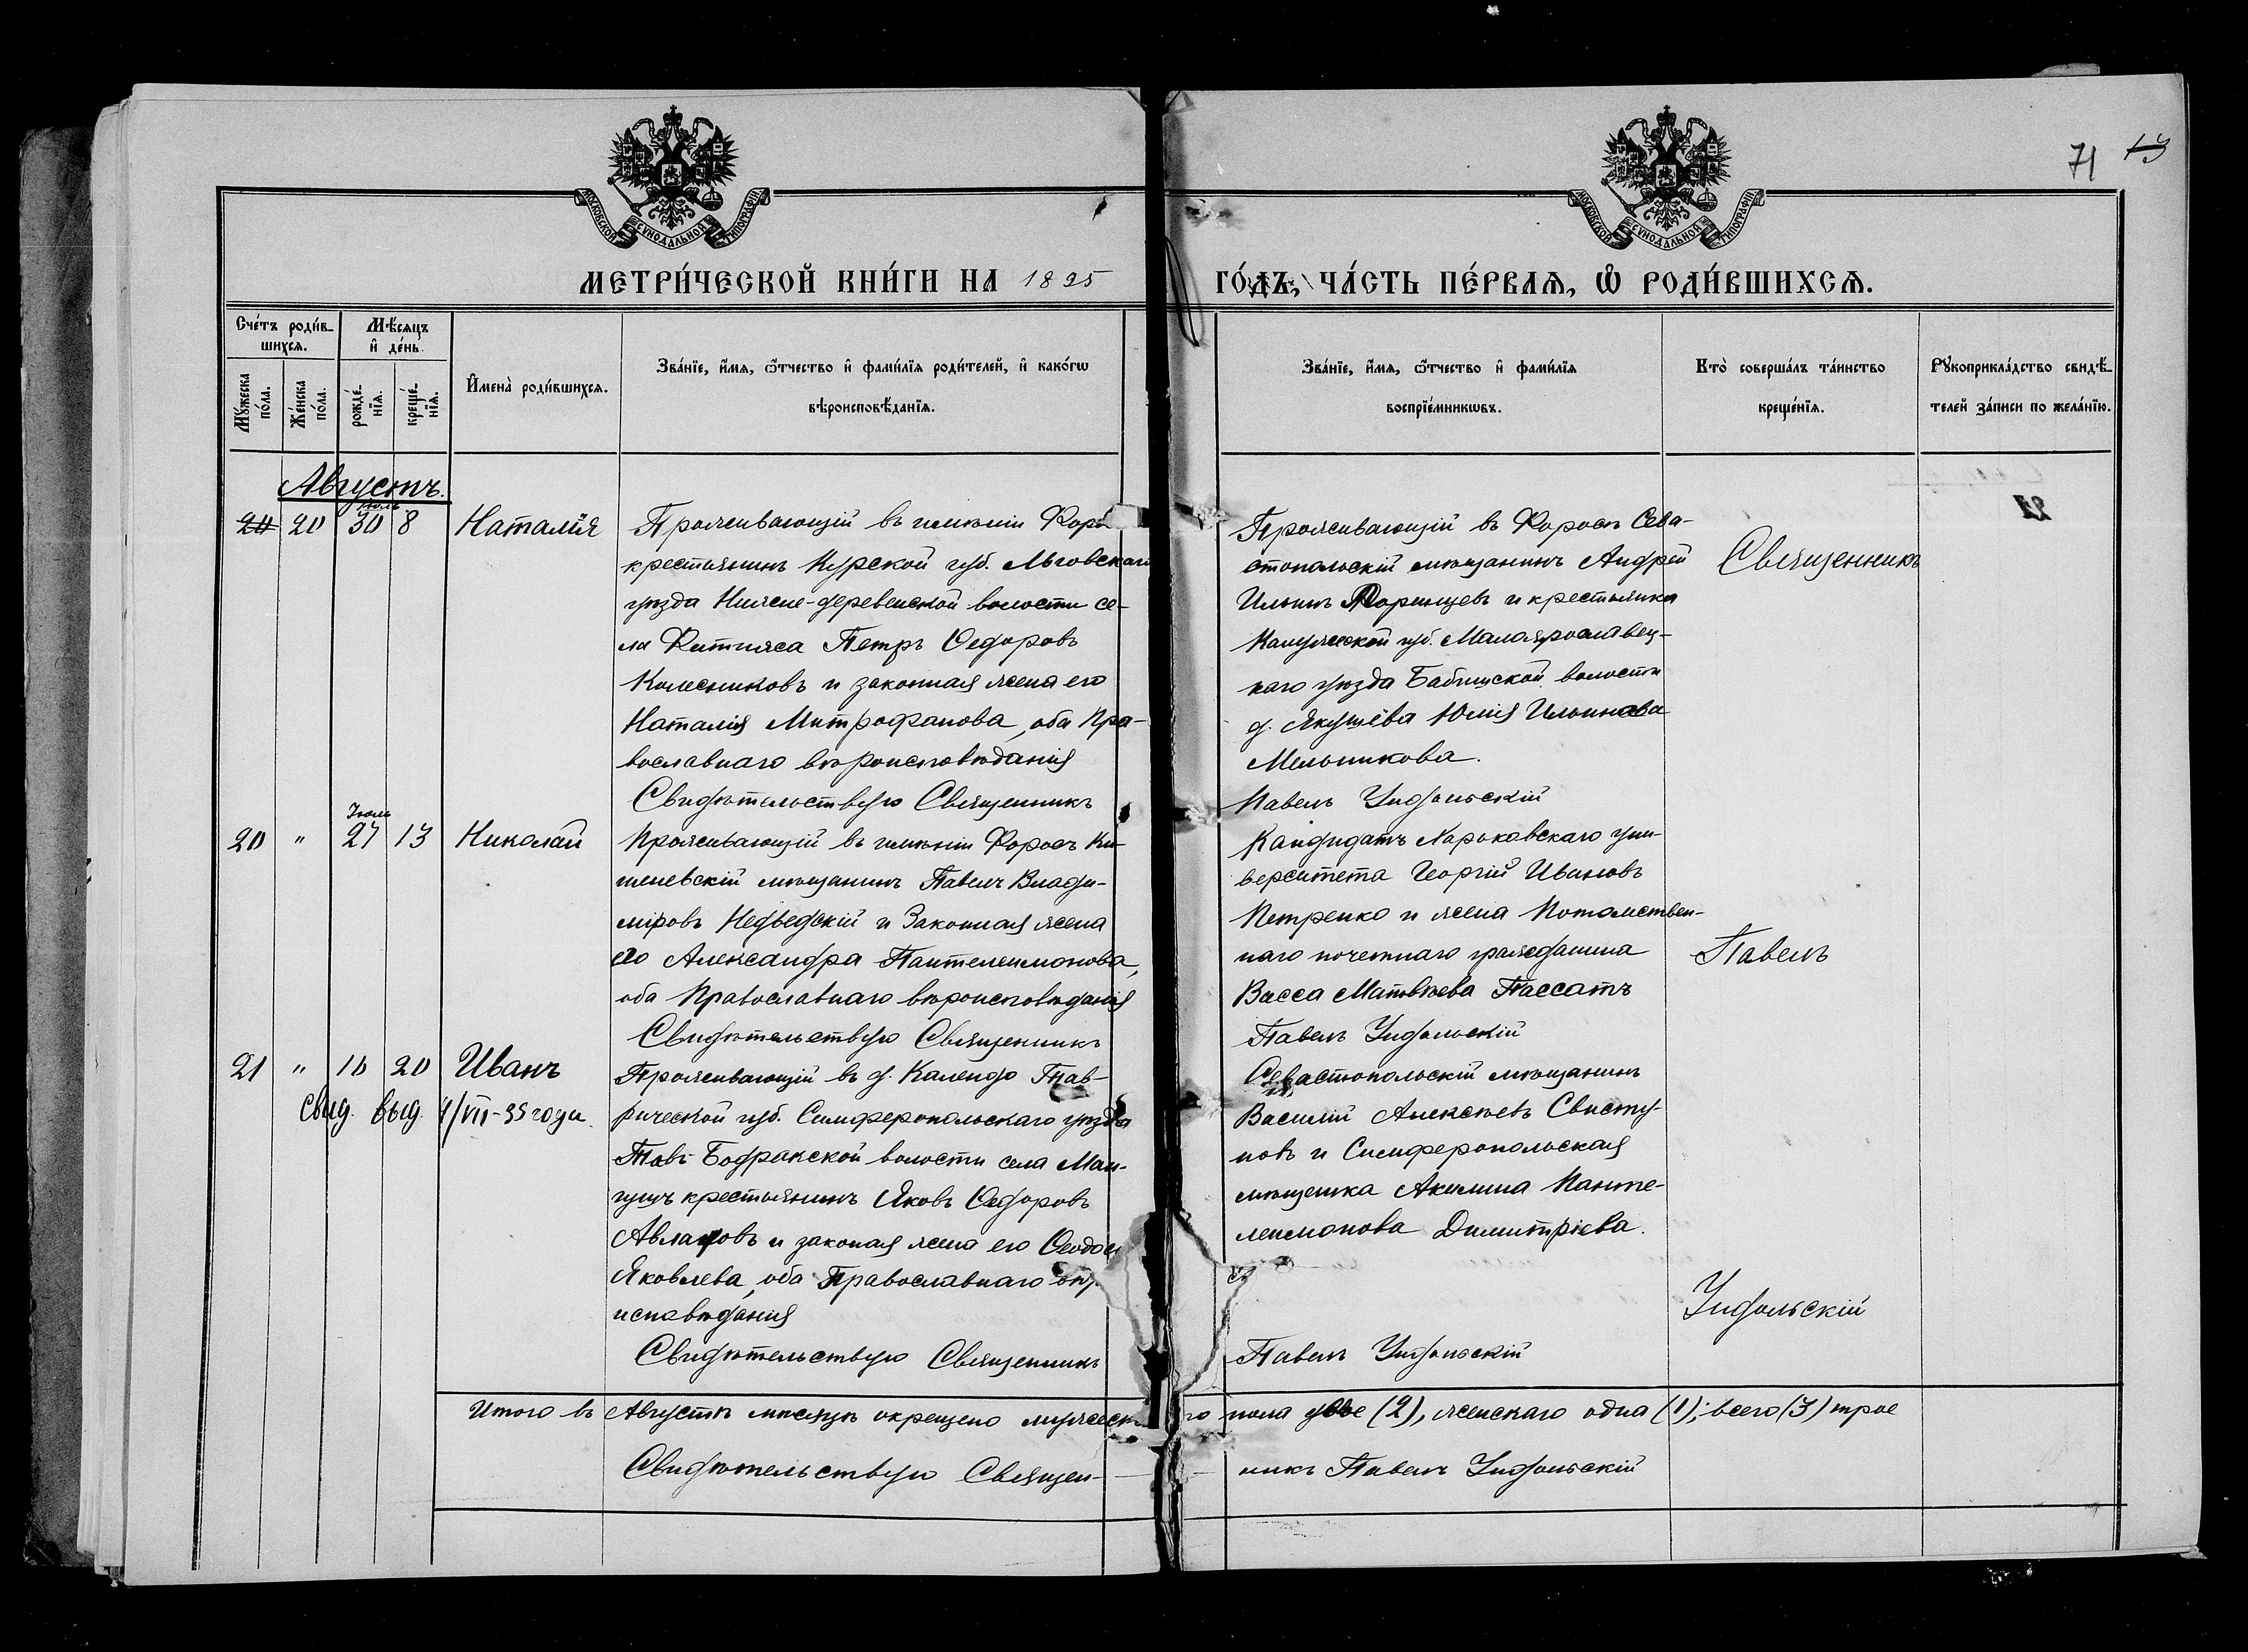 71 13
МОСКОВСКОЙ СѴНОДАЛЬНОЙ ТИПОГРАФІИ
МОСКОВСКОЙ СѴНОДАЛЬНОЙ ТИПОГРАФІИ
МЕТРИ́ЧЕСКОЙ КНИ́ГИ НА 1895 ГО́ДЪ, ЧА́СТЬ ПЕ́РВАѦ, Ѽ РОДИ́ВШИХСѦ.
Сче́тъ роди́в-
шихсѧ.
Мѣ́сѧцъ
и҆ де́нь.
Мꙋ́жеска
по́ла.
Же́нска
по́ла.
рожде́-
нїѧ.
креще́-
нїѧ.
И҆мена̀ роди́вшихсѧ.
Зва́нїе, и҆́мѧ, ѻ҆́тчество и҆ фами́лїѧ роди́телей, и҆ како́гѡ
вѣроисповѣ́данїѧ.
Зва́нїе, и҆́мѧ, ѻ҆́тчество и҆ фами́лїѧ
воспрїе́мникѡвъ.
Кто̀ соверша́лъ та́инство
креще́нїѧ.
Рꙋкоприкла́дство свидѣ́-
телей за́писи по жела́нїю.
Августъ.
Іюль
20 30 8 Наталія
Проживающій въ имѣніи Форо
крестьянинъ Курской губ. Льговскаго
уѣзда Нижне-деревенской волости се-
ла Фитижа Петръ Ѳедоровъ
Колесниковъ и законная жена его
Наталія Митрофанова, оба Пра-
вославнаго вѣроисповѣданія
Свидѣтельствую Священникъ
Проживающій въ Форосѣ Сева-
стопольскій мѣщанинъ Андрей
Ильинъ и крестьянка
Калужской губ. Малоярославец-
каго уѣзда Бабичской волости
д. Якушева Юлія Ильинова
Мельникова.
Павелъ Ундольскій
Священникъ
Іюль
20 " 27 13 Николай
Проживающій въ имѣніи Форосъ Ки-
шеневскій мѣщанинъ Павелъ Влади-
міровъ Недѣдскій и Законная жена
его Александра Пантелеимонова,
оба Православнаго вѣроисповѣданія
Свидѣтельствую Священникъ
Кандидатъ Харьковскаго уни-
верситета Георгій Ивановъ
Петренко и жена Потомствен-
наго почетнаго гражданина
Васса Матвѣева Пассатъ
Павелъ Ундольскій
Павелъ
21 " 10 20 Иванъ
свид. выд. 4/VII-35 года.
Проживающій въ д. Календо Тав-
рической губ. Симферопольскаго уѣзда
Тавъ-Бодракской волости села Ман-
гушъ крестьянинъ Яковъ Ѳедоровъ
и законая жена его
Яковлева, оба Православнаго
исповѣданія
Свидѣтельствую Священникъ
Севастопольскій мѣщанинъ
Василій Алексѣевъ Свисту-
новъ и Симферопольская
мѣщанка Акилина Панте-
леимонова Димитріева.
Павелъ Ундольскій
Ундольскій
Итого въ Августѣ мѣсяцѣ окрещено мужескаго пола двое (2), женскаго одна (1); всего (3) трое
Свидѣтельствую Священ- никъ Павелъ Ундольскій